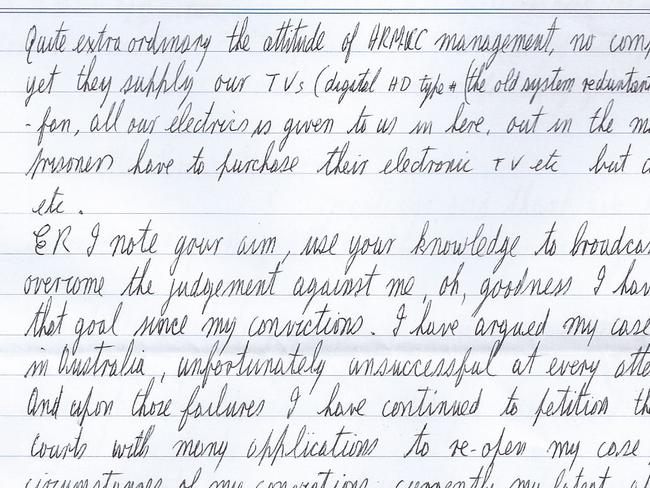 Quite extra ordinary the attitude of HRMCC management, no comp
yet they supply our TVs (digital HD type + (the old system redundan
- fan, all our electrics is given to us in here, out in the m
prisoners have to purchase their electronic TV etc but
etc.
ER I note your aim, use your knowledge to broadcas
overcome the judgement against me, oh, goodness I hav
that goal since my convictions. I have argued my case
in Australia, unfortunately unsuccessful at every atte
And upon those failures I have continued to petition th
Courts with many applications to re-open my case
circumstances of my convictions, currently my latest